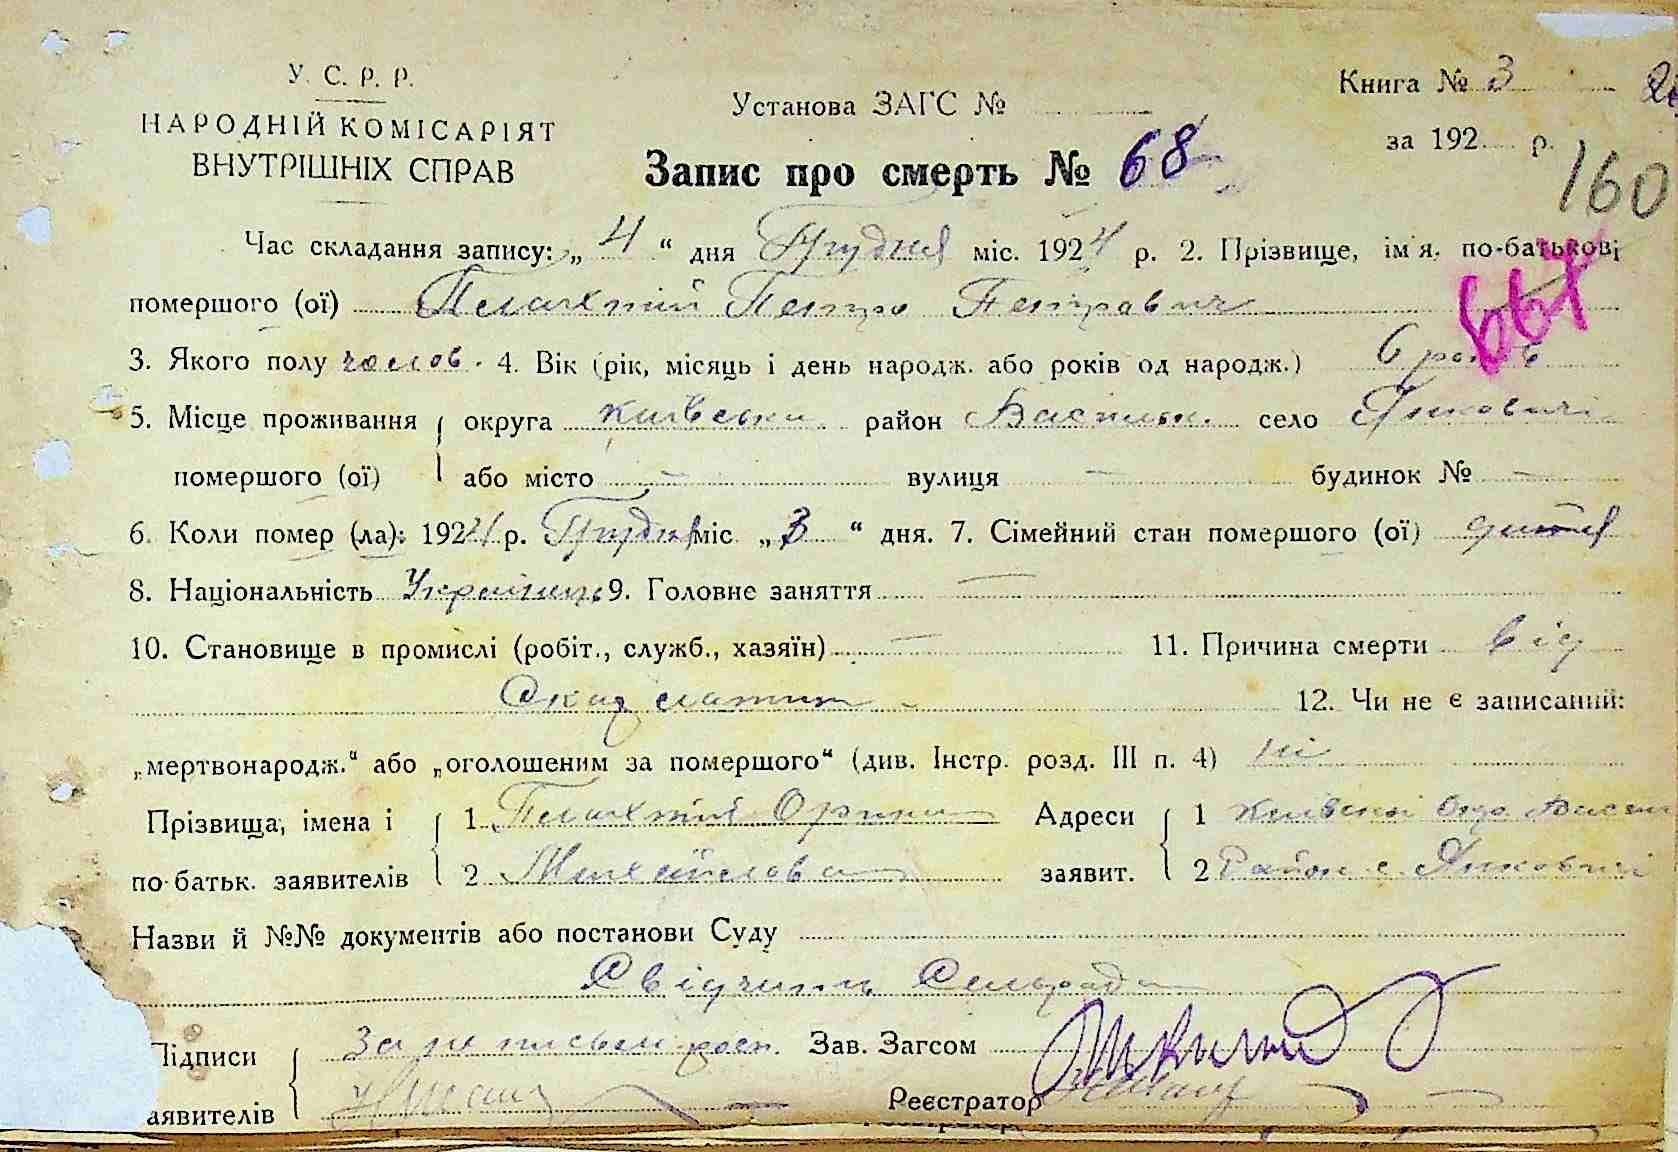 У. С. Р. Р.
НАРОДНІЙ КОМІСАРІЯТ
ВНУТРІШНІХ СПРАВ
Установа ЗАГС №
Книга № 3
за 192 р.
160
Запис про смерть № 68
Час складання запису: „ 4 “ дня Грудня міс. 1924 р. 2. Прізвище, ім'я, по-батькові
667
помершого (ої) Плахтій Петро Петрович
3. Якого полу чолов. 4. Вік (рік, місяць і день народж. або років од народж.) 6 років
5. Місце проживання округа Київська район Васильк. село Янковичі
помершого (ої) або місто — вулиця — будинок № —
6. Коли помер (ла): 1924 р. Грудня міс. „ 3 “ дня. 7. Сімейний стан помершого (ої) дитя
8. Національність Українець 9. Головне заняття —
10. Становище в промислі (робіт., служб., хазяїн) — 11. Причина смерти від
Скарлатини 12. Чи не є записаний:
„мертвонародж.“ або „оголошеним за помершого“ (див. Інстр. розд. III п. 4) ні
Прізвища, імена і 1 Плахтій Орина Адреси 1 Київськ Окр. Васил
по-батьк. заявителів 2 Михайлова заявит. 2 Район с. Янковичі
Назви й №№ документів або постанови Суду
Свідчить Сельрада
Підписи За не письмен. росп. Зав. Загсом
аявителів Реєстратор